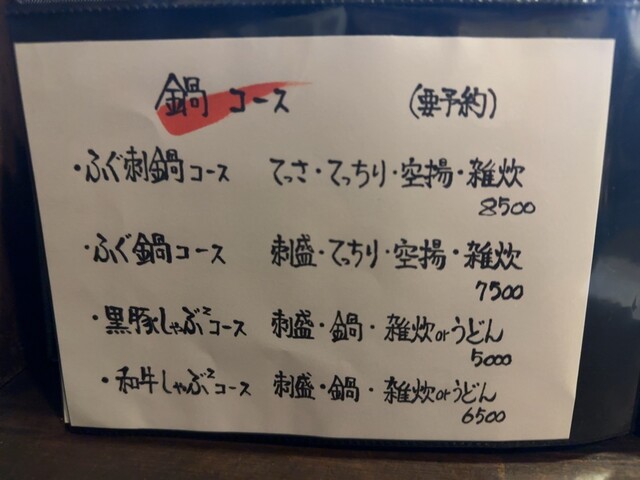 鍋コース (要予約)
・ふぐ刺鍋コース てっさ・てっちり・空揚・雑炊
8500
・ふぐ鍋コース 刺盛・てっちり・空揚・雑炊
7500
・黒豚しゃぶ²コース 刺盛・鍋・雑炊orうどん
5000
・和牛しゃぶ²コース 刺盛・鍋・雑炊orうどん
6500